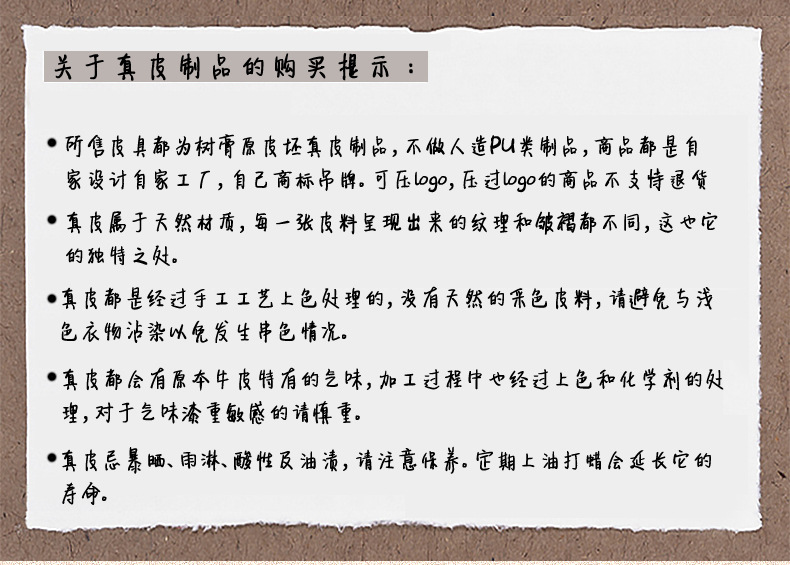 关于真皮制品的购买提示：
●所售皮具都为树膏原皮坯真皮制品,不做人造PU类制品,商品都是自
家设计自家工厂,自己商标吊牌。可压logo,压过logo的商品不支持退货
●真皮属于天然材质,每一张皮料呈现出来的纹理和皱褶都不同,这也它
的独特之处。
●真皮都是经过手工工艺上色处理的,没有天然的彩色皮料,请避免与浅
色衣物沾染以免发生串色情况。
●真皮都会有原本牛皮特有的气味,加工过程中也经过上色和化学剂的处
理,对于气味漆重敏感的请慎重。
●真皮忌暴晒、雨淋、酸性及油渍,请注意保养。定期上油打蜡会延长它的
寿命。